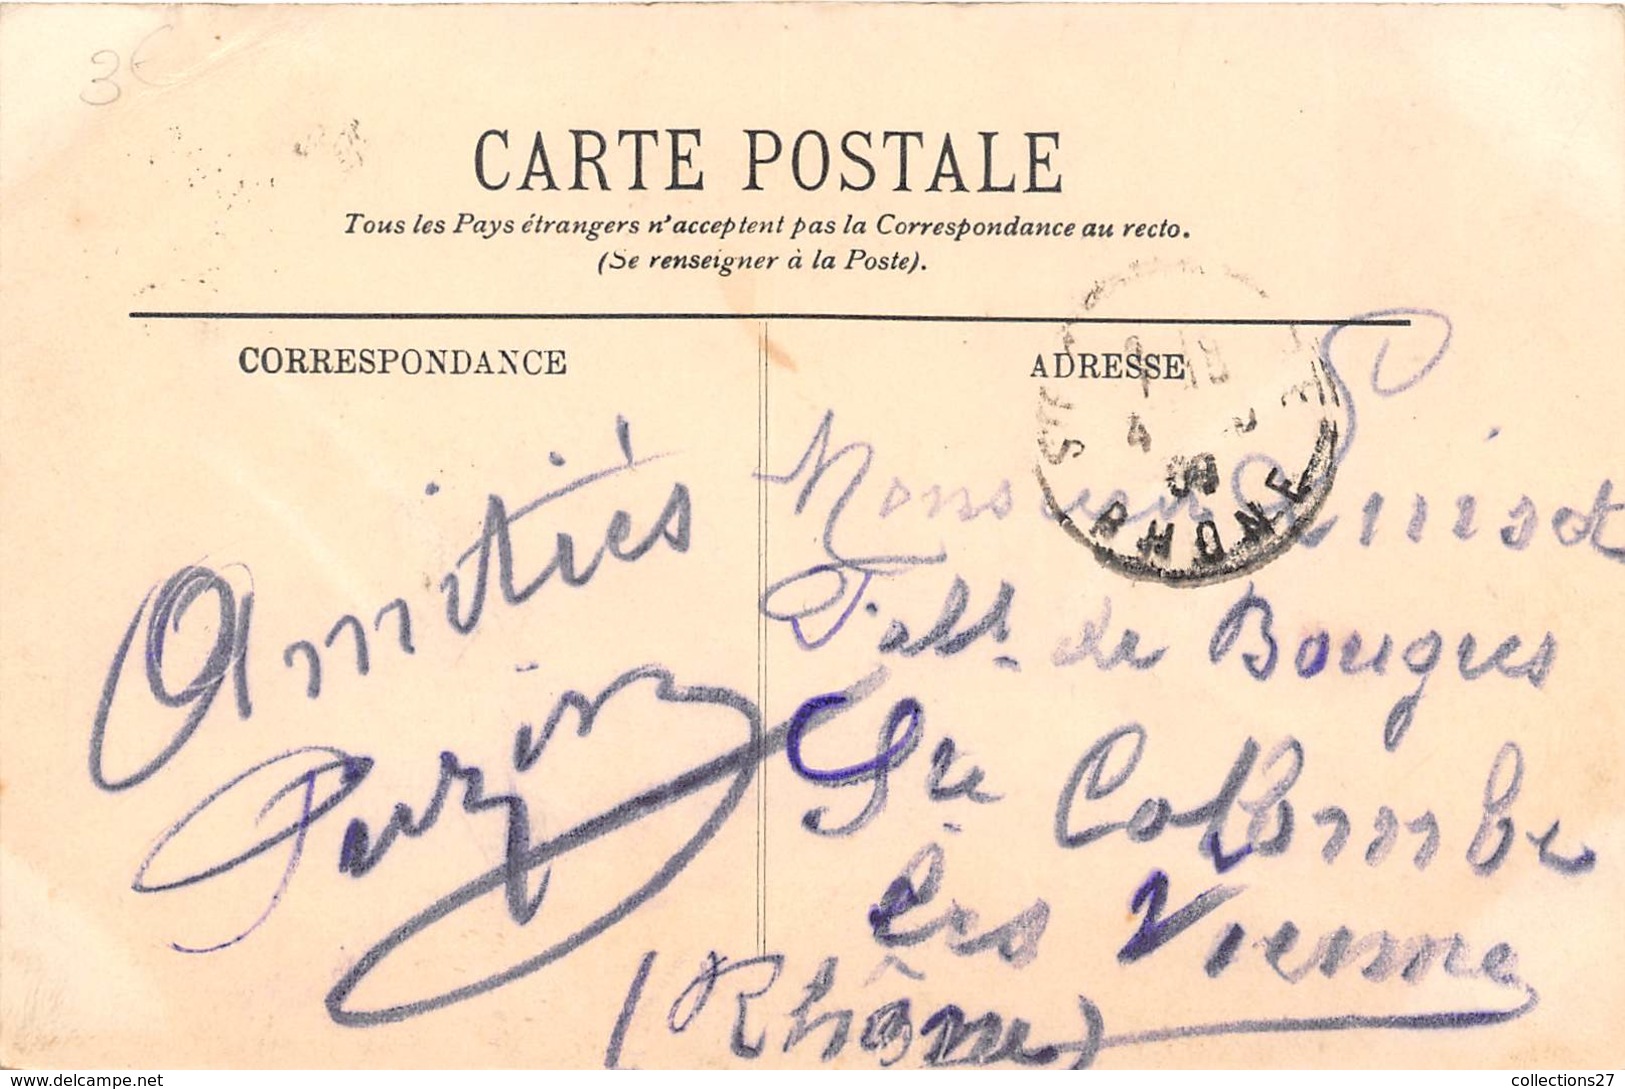 3€
CARTE POSTALE
Tous les Pays étrangers n'acceptent pas la Correspondance au recto.
(Se renseigner à la Poste).
CORRESPONDANCE
ADRESSE
4
RHONE
Amitiés
Monsieur
de Bougres
Ste Colombe
lès Vienne
(Rhône)
collections27